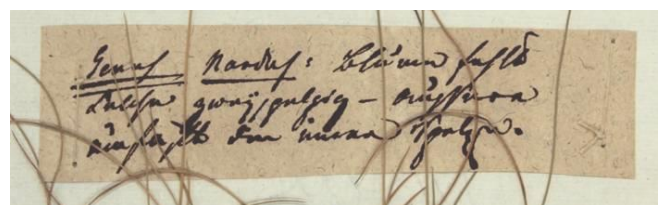 Genus Nardus: Blume fehlt
Kelche zweyspelzig – äussere
umfaßt den innern Spelze.